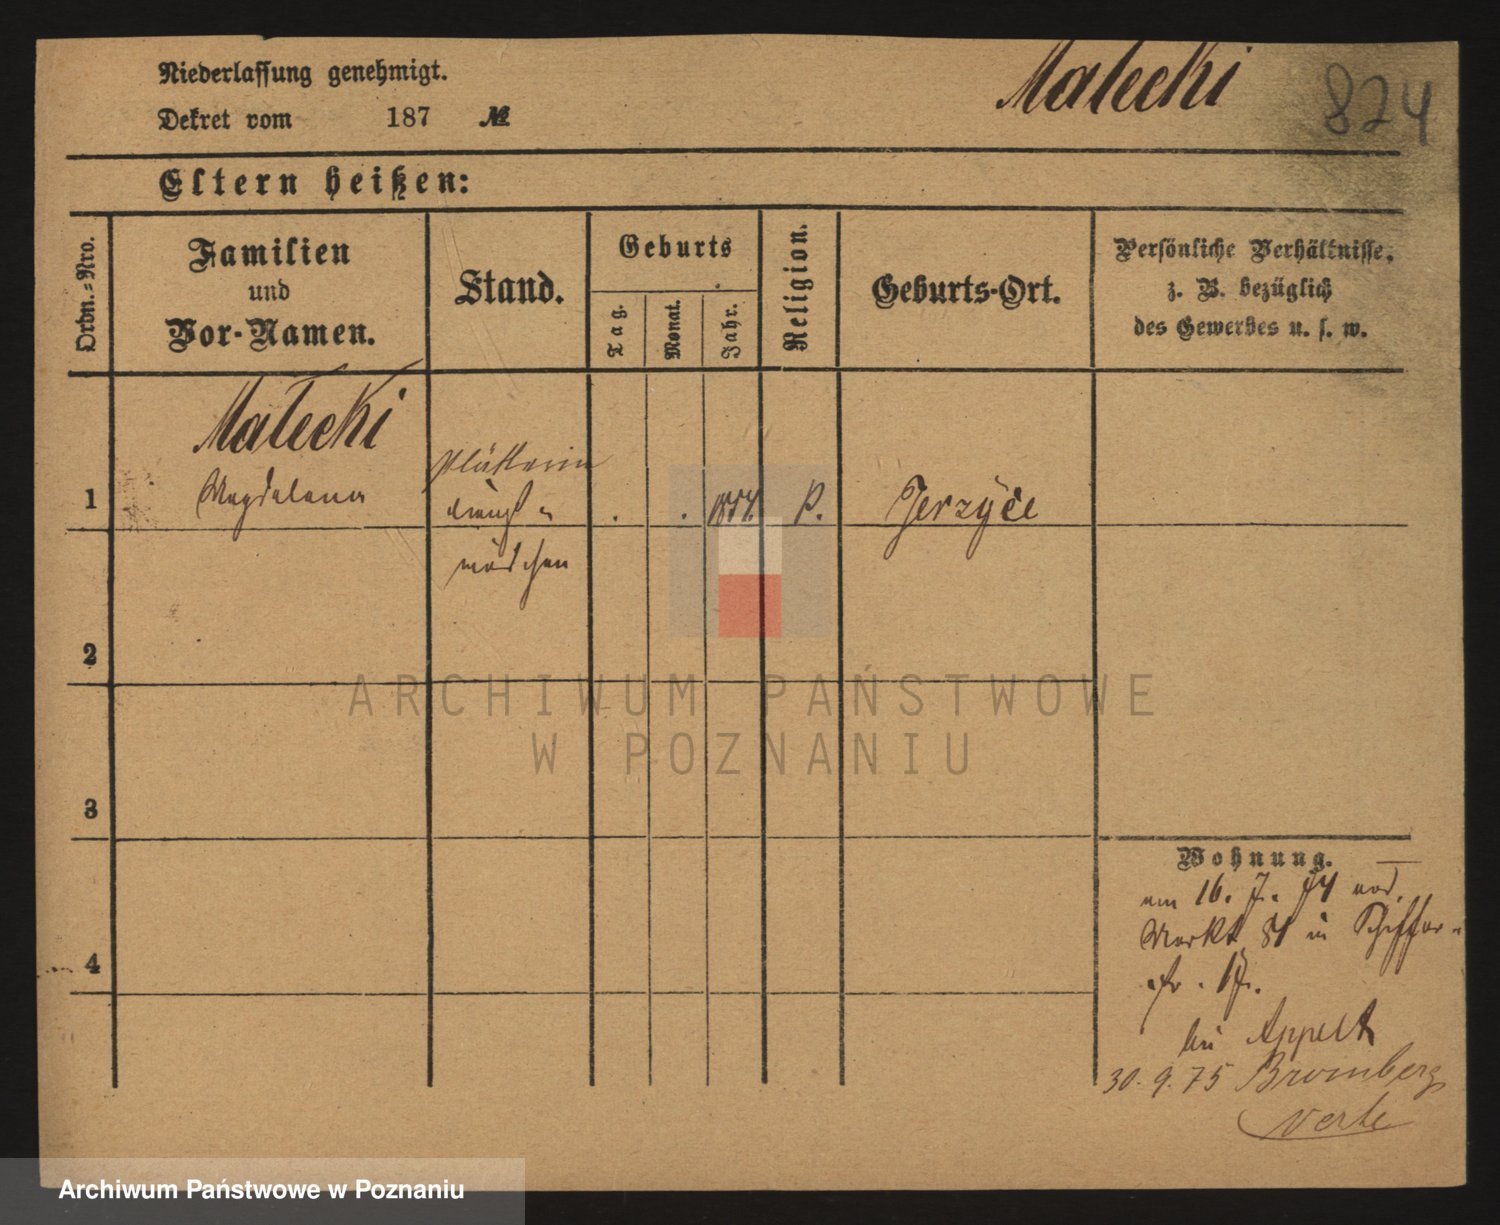 Niederlassung genehmigt.
Malecki
824
Dekret vom 187 №
Eltern heißen:
Ordn.-Nro.
Familien
und
Vor-Namen.
Stand.
Geburts
Tag.
Monat.
Jahr.
Religion.
Geburts-Ort.
Persönliche Verhältnisse,
z. B. bezüglich
des Gewerbes u. s. w.
Małecki
Plätterin
1
Magdalena
Dienst-
. . 1854. P.
Jerzyce
mädchen
2
ARCHIWUM PAŃSTWOWE
W POZNANIU
3
Wohnung.
am 16. 7. 74
Markt 81 in
4
bei Appelt
30.9.75 Bromberg
verte
Archiwum Państwowe w Poznaniu